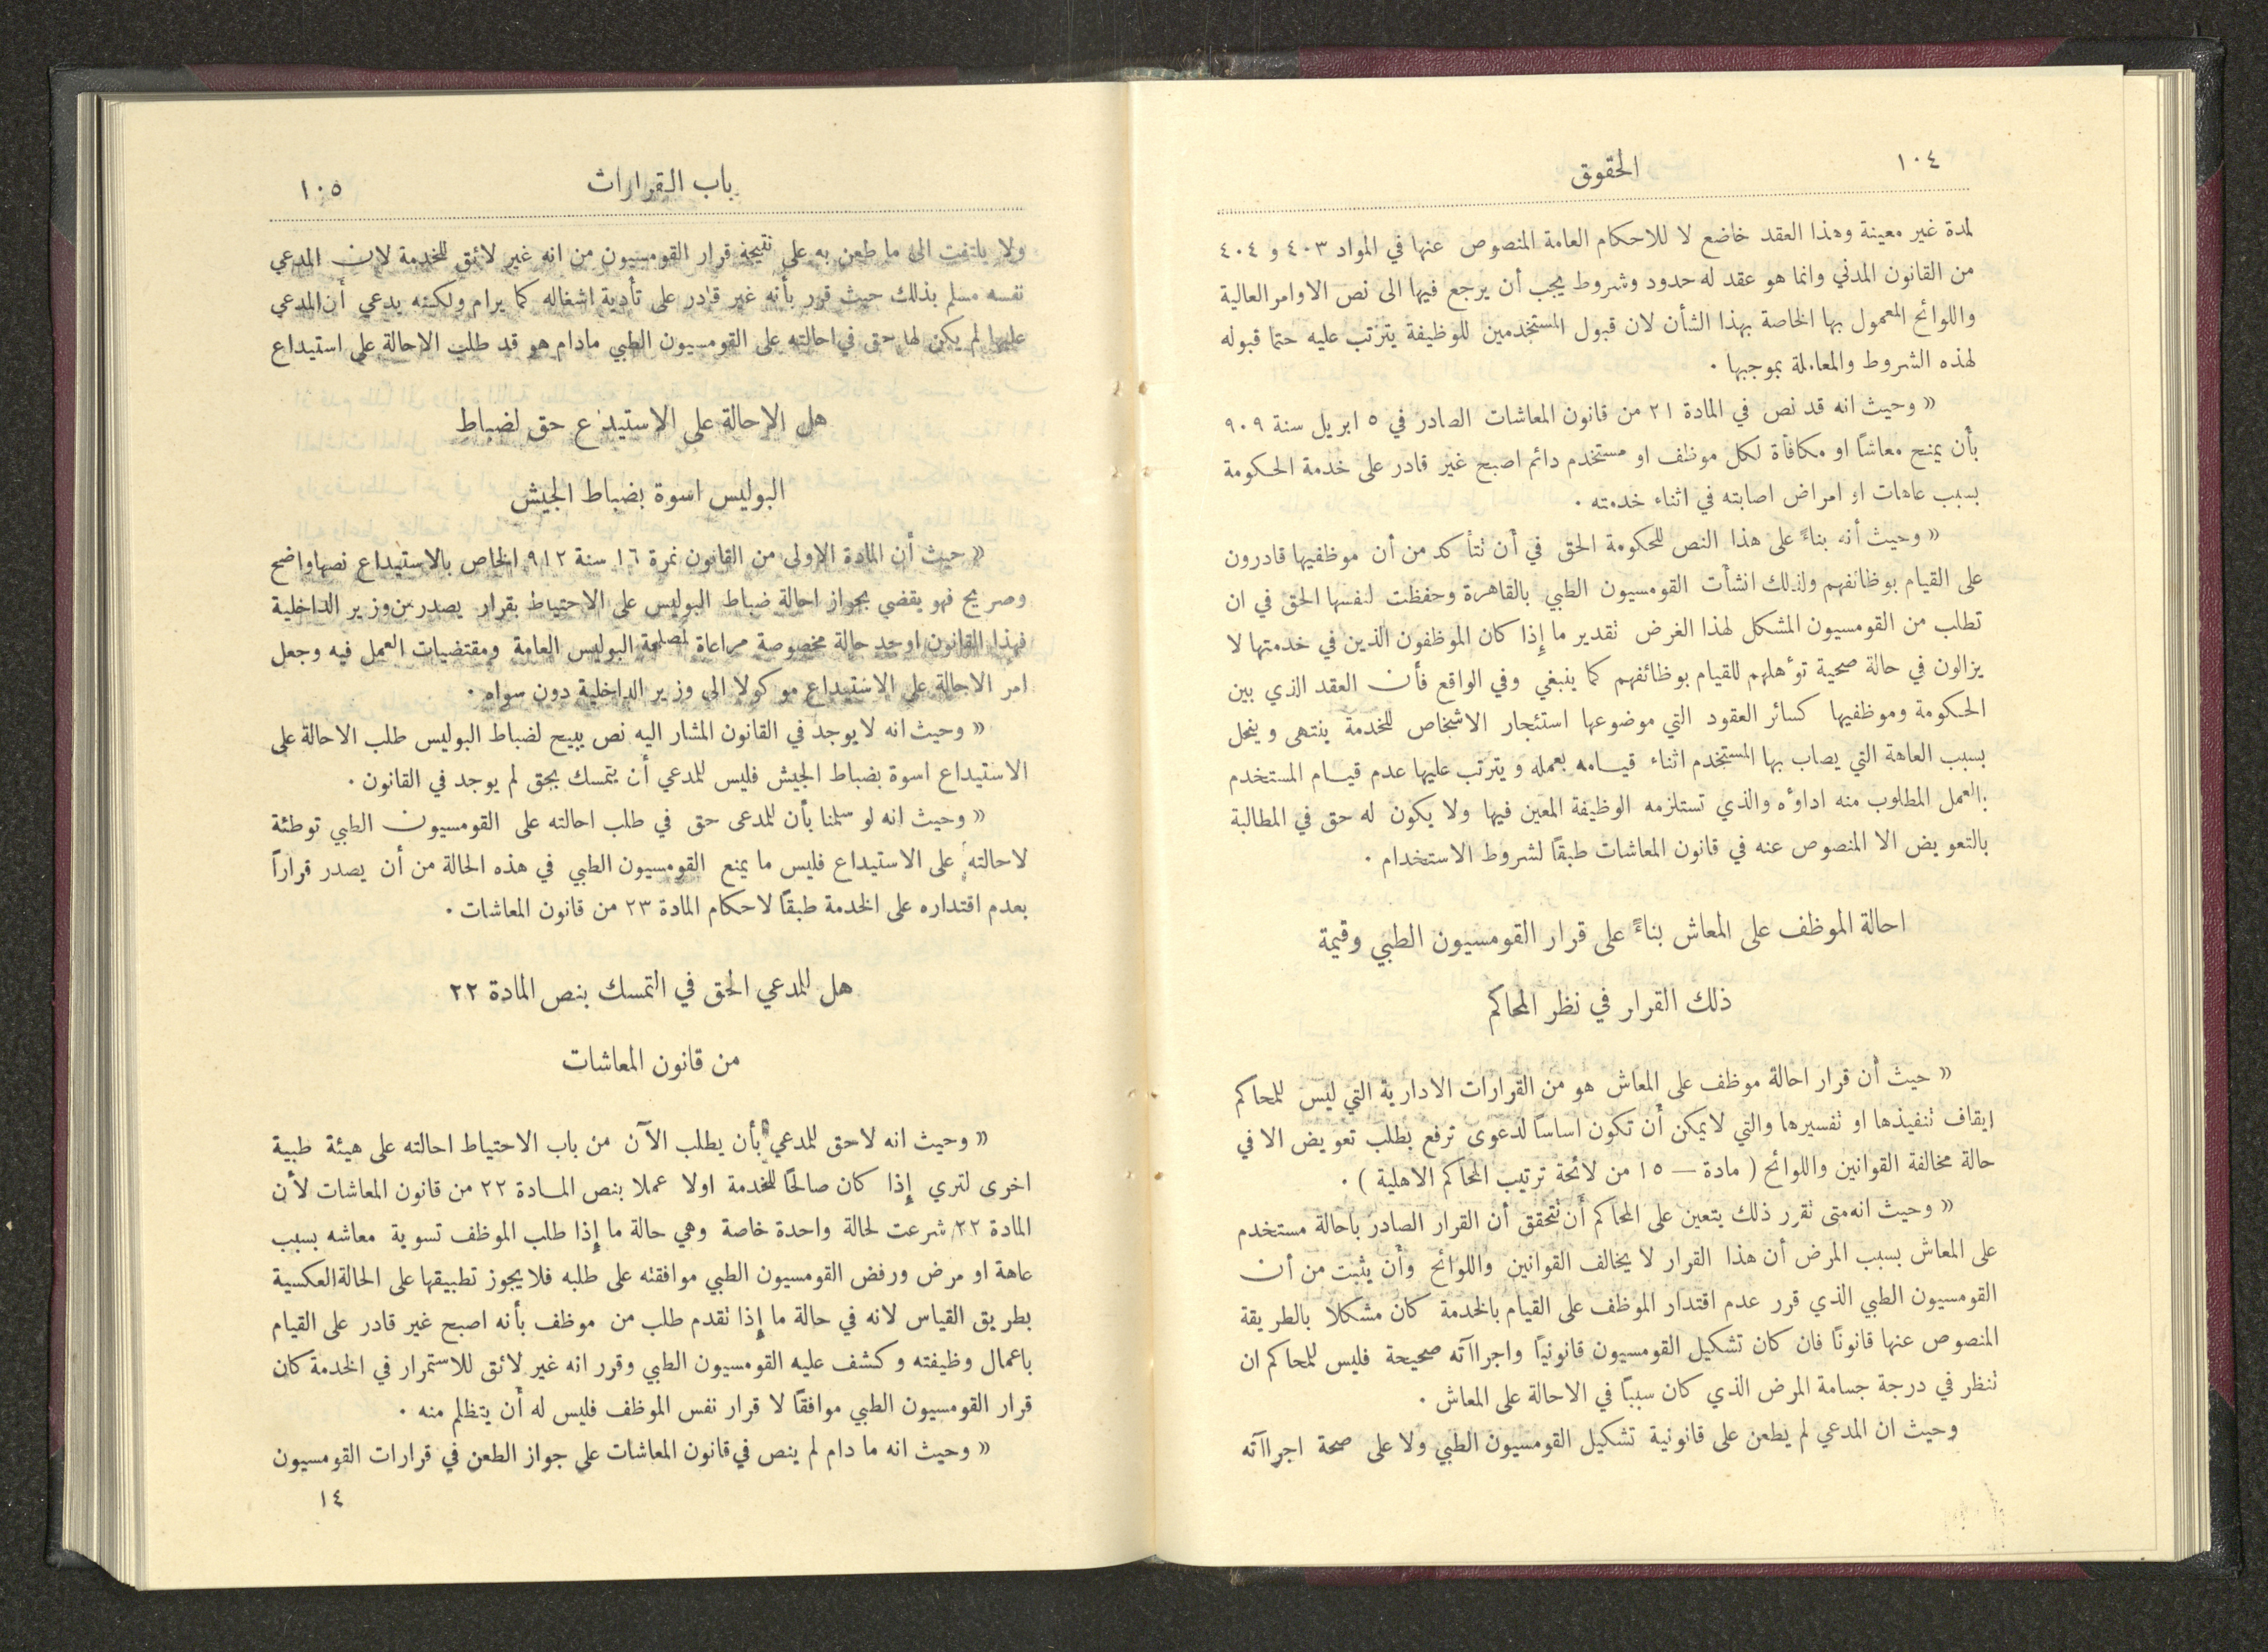 ١٠٤
الحقوق
لمدة غير معينة وهذا العقد خاضع لا للاحكام العامة المنصوص عنها في المواد ٤٠٣ و ٤٠٤
من القانون المدني وانما هو عقد له حدود وشروط يجب أن يرجع فيها الى نص الاوامر العالية
واللوائح المعمول بها الخاصة بهذا الشأن لان قبول المستخدمين للوظيفة يترتب عليه حتما قبوله
لهذه الشروط والمعاملة بموجبها ·
« وحيث انه قد نص في المادة ٢١ من قانون المعاشات الصادر في ٥ ابريل سنة ٩٠٩
بأن يمنح معاشاً او مكافأة لكل موظف او مستخدم دائم اصبح غير قادر على خدمة الحكومة
بسبب عاهات او امراض اصابته في اثناء خدمته ·
« وحيث أنه بناءً على هذا النص للحكومة الحق في أن تتأكد من أن موظفيها قادرون
على القيام بوظائفهم ولذلك انشأت القومسيون الطبي بالقاهرة وحفظت لنفسها الحق في ان
تطلب من القومسيون المشكل لهذا الغرض تقدير ما إِذا كان الموظفون الذين في خدمتها لا
يزالون في حالة صحية تؤهلهم للقيام بوظائفهم كما ينبغي وفي الواقع فأن العقد الذي بين
الحكومة وموظفيها كسائر العقود التي موضوعها استئجار الاشخاص للخدمة ينتهى وينحل
بسبب العاهة التي يصاب بها المستخدم اثناء قيامه بعمله ويترتب عليها عدم قيام المستخدم
بالعمل المطلوب منه اداؤه والذي تستلزمه الوظيفة المعين فيها ولا يكون له حق في المطالبة
بالتعويض الا المنصوص عنه في قانون المعاشات طبقاً لشروط الاستخدام ·
احالة الموظف على المعاش بناءً على قرار القومسيون الطبي وقيمة
ذلك القرار في نظر المحاكم
« حيث أن قرار احالة موظف على المعاش هو من القرارات الادارية التي ليس للمحاكم
ايقاف تنفيذها او تفسيرها والتي لايمكن أن تكون اساساً لدعوى ترفع بطلب تعويض الا في
حالة مخالفة القوانين واللوائح ( مادة — ١٥ من لائحة ترتيب المحاكم الاهلية ) ·
« وحيث انه متى تقرر ذلك يتعين على المحاكم أن تتحقق أن القرار الصادر باحالة مستخدم
على المعاش بسبب المرض أن هذا القرار لا يخالف القوانين واللوائح وأن يثبت من أن
القومسيون الطبي الذي قرر عدم اقتدار الموظف على القيام بالخدمة كان مشكلا بالطريقة
المنصوص عنها قانونًا فان كان تشكيل القومسيون قانونياً واجراآته صحيحة فليس للمحاكم ان
تنظر في درجة جسامة المرض الذي كان سبباً في الاحالة على المعاش ·
وحيث ان المدعي لم يطعن على قانونية تشكيل القومسيون الطبي ولا على صحة اجراآته
باب القرارات
١٠٥
ولا يلتفت الى ما طعن به على نتيجة قرار القومسيون من انه غير لائق للخدمة لان المدعي
نفسه مسلم بذلك حيث قرر بأنه غير قادر على تأدية اشغاله كما يرام ولكنه يدعي أن المدعي
عليها لم يكن لها حق في احالته على القومسيون الطبي مادام هو قد طلب الاحالة على استيداع
هل الاحالة على الاستيدع حق لضباط
البوليس اسوة بضباط الجيش
« حيث أن المادة الاولى من القانون نمرة ١٦ سنة ٩١٢ الخاص بالاستيداع نصها واضح
وصريح فهو يقضي بجواز احالة ضباط البوليس على الاحتياط بقرار يصدر من وزير الداخلية
فهذا القانون اوجد حالة مخصوصة مراعاة لمصلحة البوليس العامة ومقتضيات العمل فيه وجعل
امر الاحالة على الاستيداع موكولا الى وزير الداخلية دون سواه ·
« وحيث انه لا يوجد في القانون المشار اليه نص يبيح لضباط البوليس طلب الاحالة على
الاستيداع اسوة بضباط الجيش فليس للمدعي أن يتمسك بحق لم يوجد في القانون ·
« وحيث انه لو سلمنا بأن للمدعى حق في طلب احالته على القومسيون الطبي توطئة
لاحالته على الاستيداع فليس ما يمنع القومسيون الطبي في هذه الحالة من أن يصدر قراراً
بعدم اقتداره على الخدمة طبقاً لاحكام المادة ٢٣ من قانون المعاشات ·
هل للمدعي الحق في التمسك بنص المادة ٢٢
من قانون المعاشات
« وحيث انه لاحق للمدعي بأن يطلب الآن من باب الاحتياط احالته على هيئة طبية
اخرى لتري إِذا كان صالحًا للخدمة اولا عملا بنص المادة ٢٢ من قانون المعاشات لأن
المادة ٢٢ شرعت لحالة واحدة خاصة وهي حالة ما إِذا طلب الموظف تسوية معاشه بسبب
عاهة او مرض ورفض القومسيون الطبي موافقته على طلبه فلا يجوز تطبيقها على الحالة العكسية
بطريق القياس لانه في حالة ما إِذا تقدم طلب من موظف بأنه اصبح غير قادر على القيام
باعمال وظيفته وكشف عليه القومسيون الطبي وقرر انه غير لائق للاستمرار في الخدمة كان
قرار القومسيون الطبي موافقًا لا قرار نفس الموظف فليس له أن يتظلم منه ·
« وحيث انه ما دام لم ينص في قانون المعاشات على جواز الطعن في قرارات القومسيون
١٤